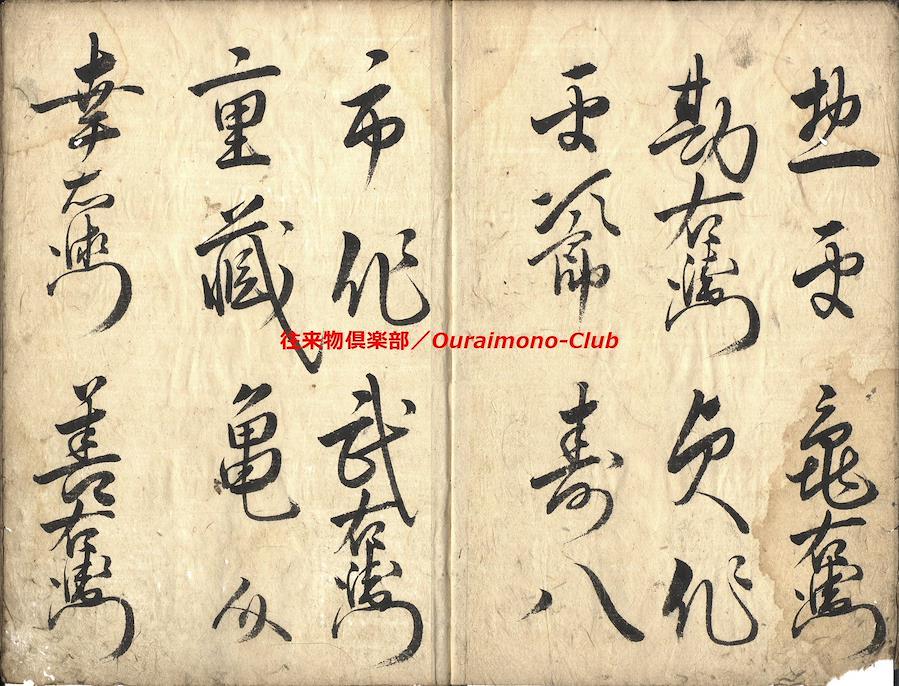 惣平　竜右衛門
勘右衛門　貞作
平　寿八
市作　武右衛門
重藏　亀介
幸右衛門　善右衛門
往来物倶楽部／Ouraimono-Club